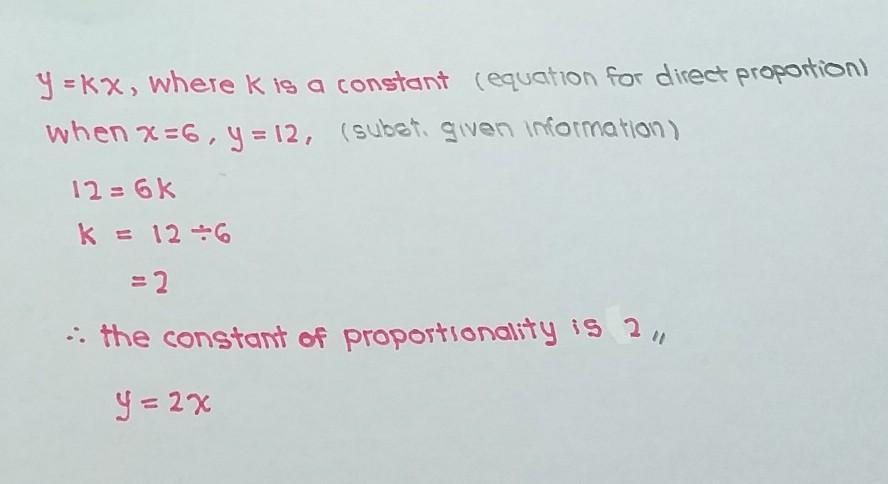 y = kx, where k is a constant (equation for direct proportion)
when x = 6, y = 12, (subst. given information)
12 = 6k
k = 12 ÷ 6
= 2
∴ the constant of proportionality is 2 〃
y = 2x